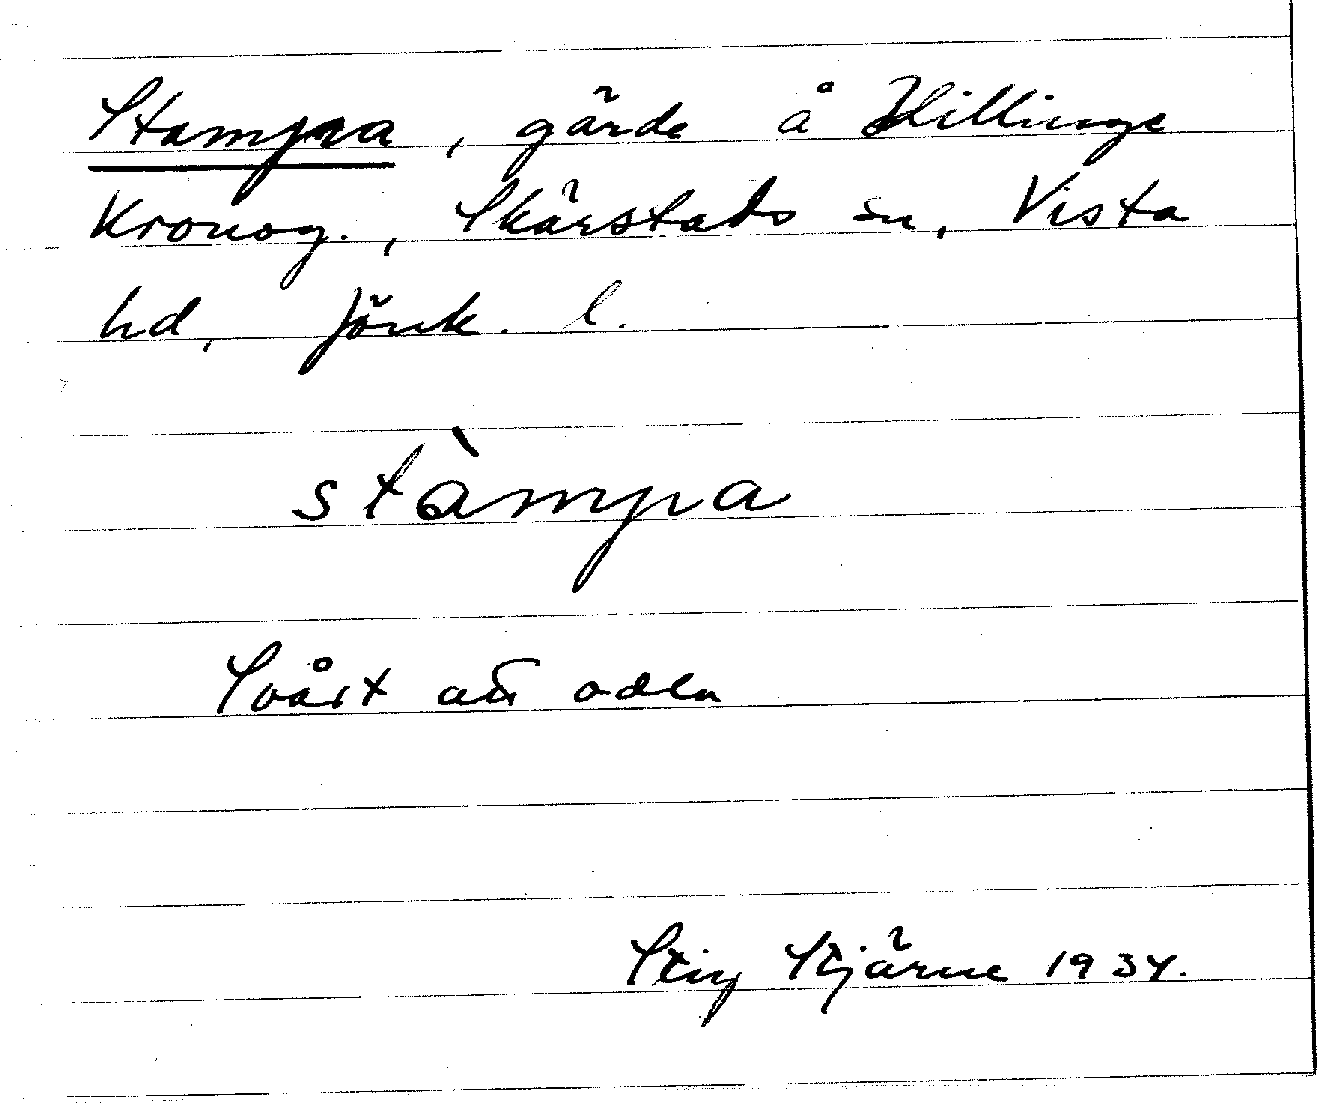 Stampa, gärde å Hillinge
Kronog., Skärstads sn, Vista
hd, Jönk. l.
stàmpa
Svårt att odla
Stig Stjärne 1934.